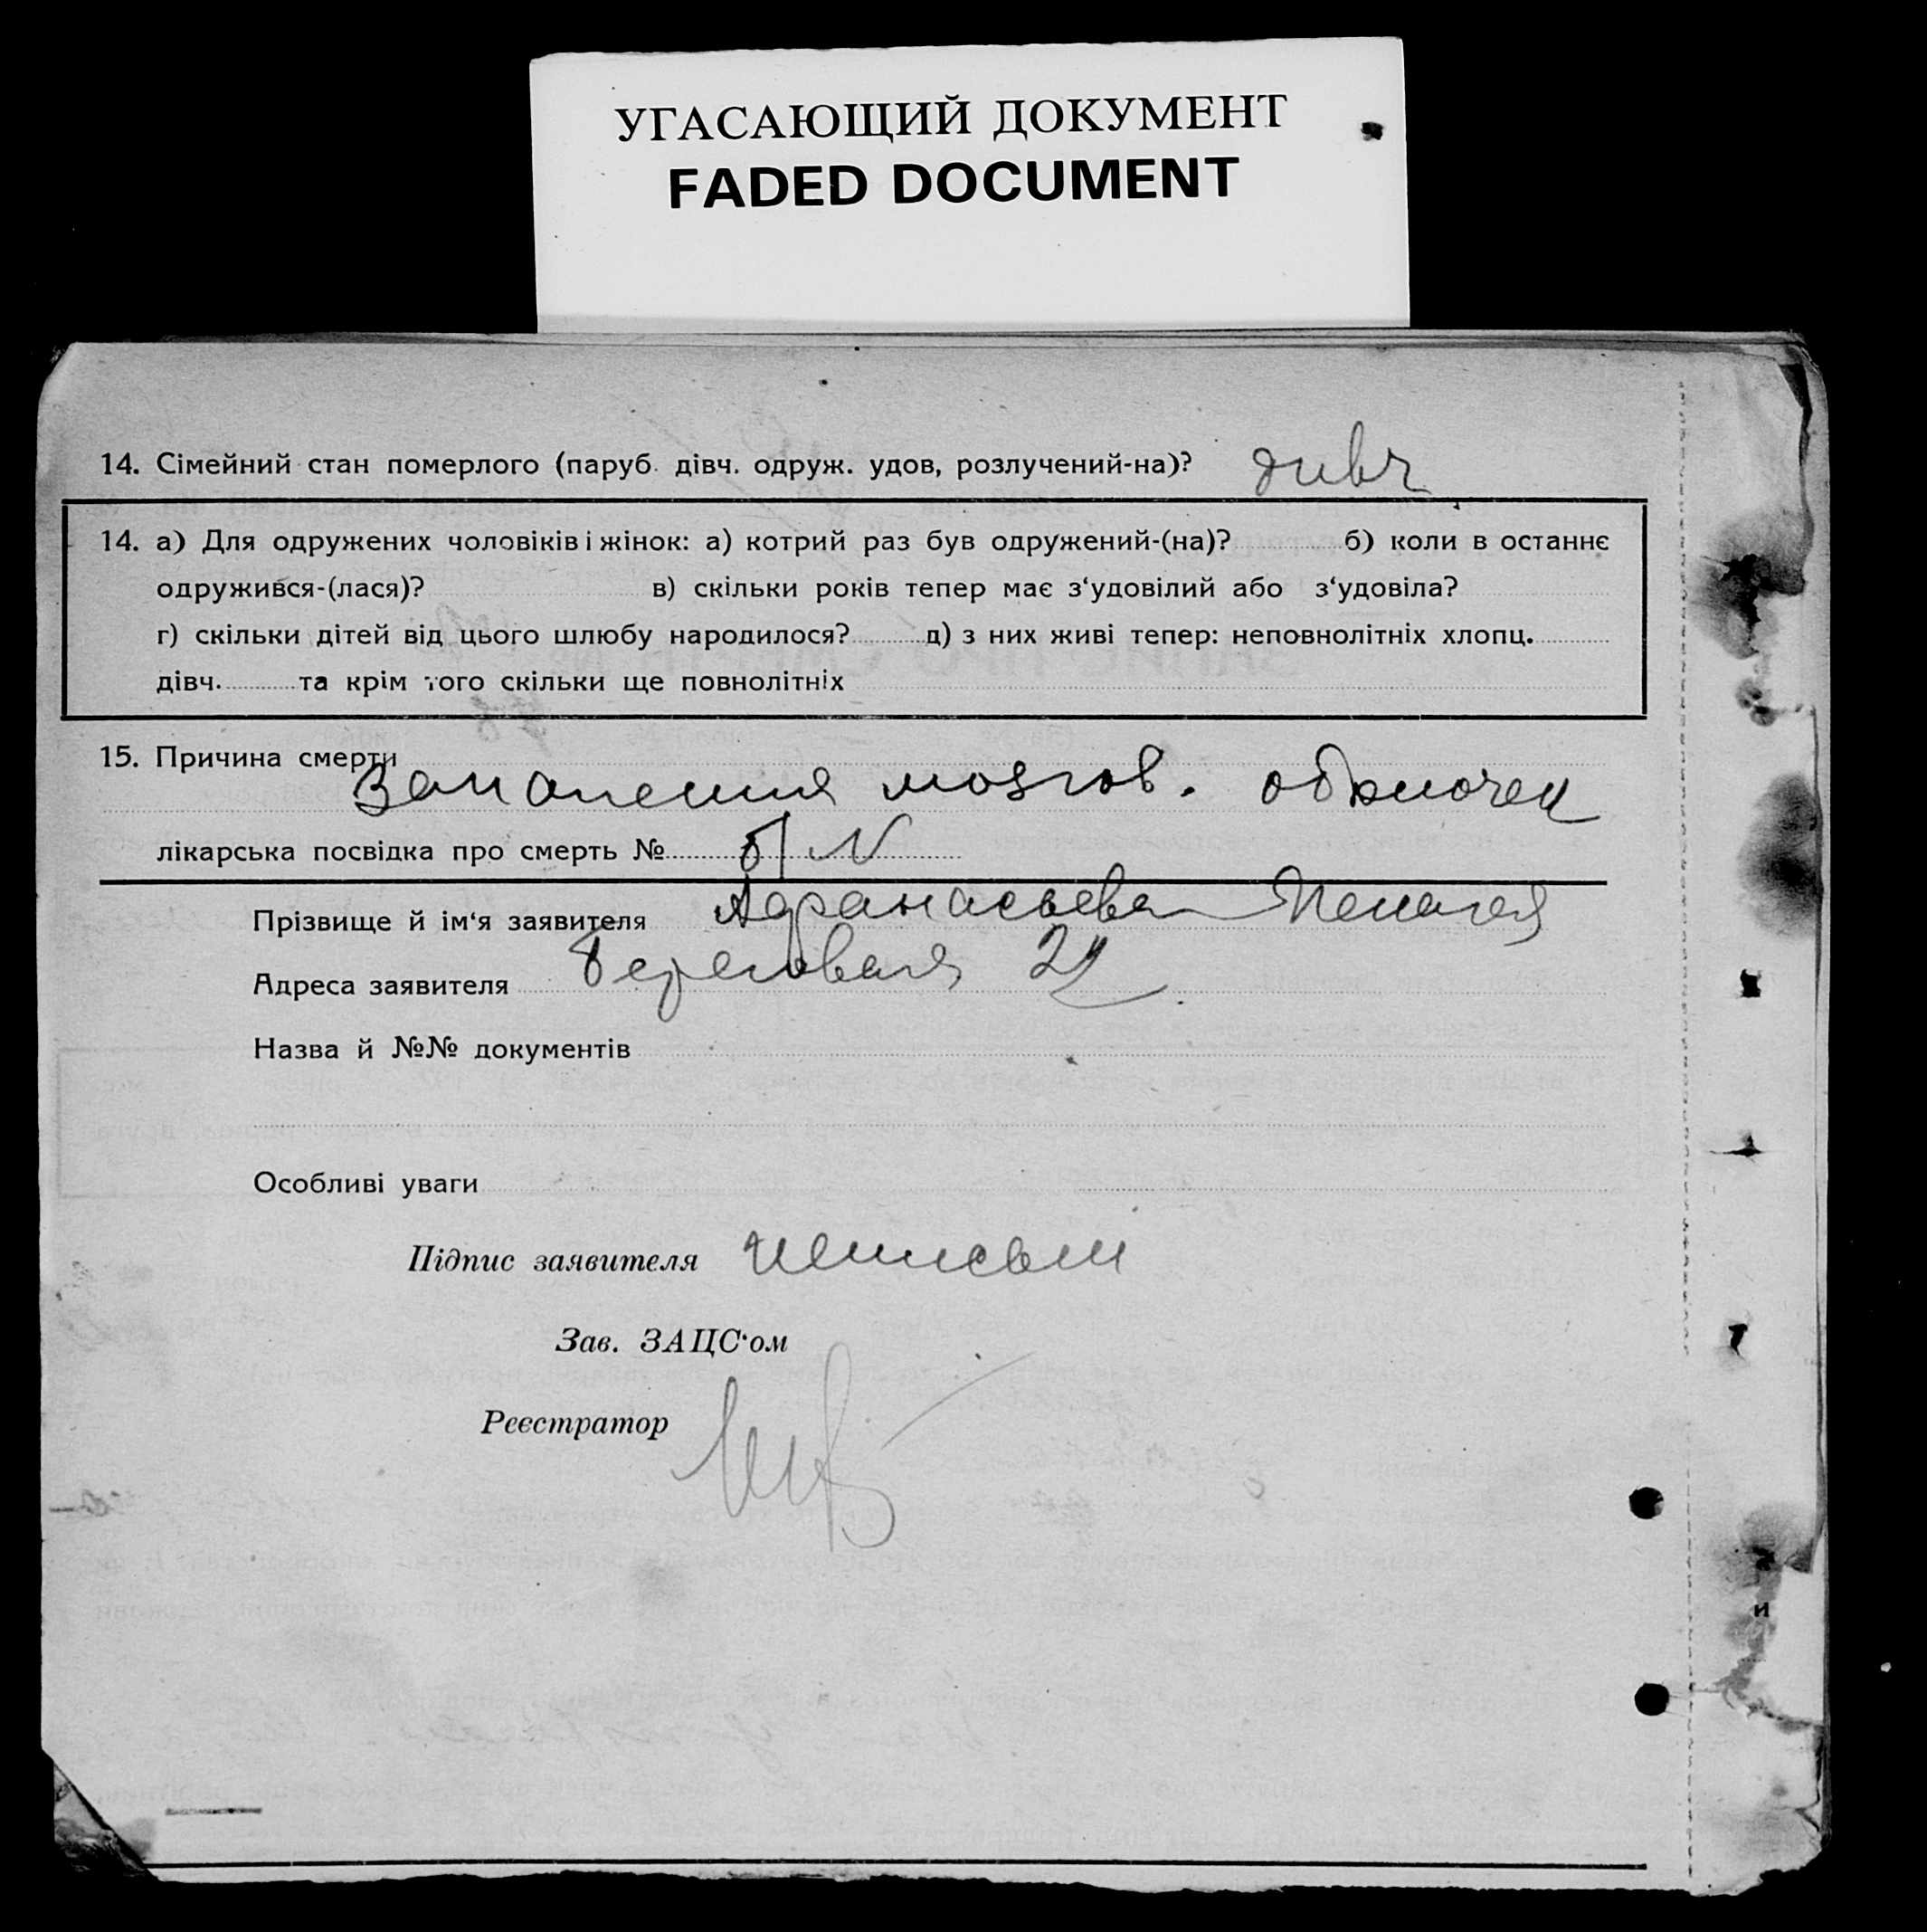 УГАСАЮЩИЙ ДОКУМЕНТ
FADED DOCUMENT
14. Сімейний стан померлого (паруб. дівч. одруж. удов, розлучений-на)? дивч
14. а) Для одружених чоловіків і жінок: а) котрий раз був одружений-(на)? б) коли в останнє
одружився-(лася)? в) скільки років тепер має з‘удовілий або з‘удовіла?
г) скільки дітей від цього шлюбу народилося? д) з них живі тепер: неповнолітніх хлопц.
дівч. та крім того скільки ще повнолітніх
15. Причина смерти
Запалення мозгов. оболочек
лікарська посвідка про смерть № б/N
Прізвище й ім‘я заявителя Афанасьева Пелагея
Адреса заявителя Береговая
Назва й №№ документів
Особливі уваги
Підпис заявителя
Зав. ЗАЦС‘ом
Реєстратор